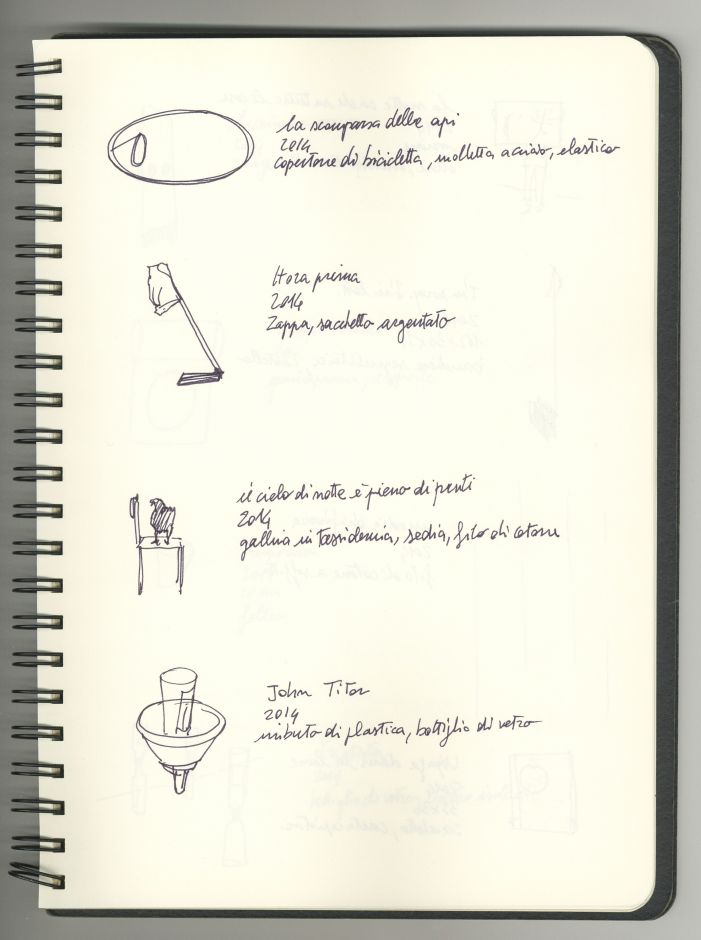 la scomparsa delle api
2014
copertone di bicicletta, molletta acciaio, elastico
Hora prima
2014
Zappa, sacchetto argentato
il cielo di notte è pieno di punti
2014
gallina in tassidermia, sedia, filo di cotone
John Titor
2014
imbuto di plastica, bottiglia di vetro